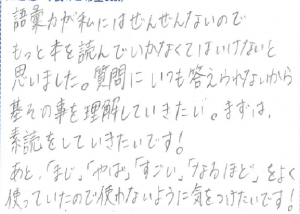 語彙力が私にはぜんぜんないので
もっと本を読んでいかなくてはいけないと
思いました。質問にいつも答えられないから
基その事を理解していきたい。まずは、
素読をしていきたいです!
あと、「まじ」「やば」「すごい」「なるほど」をよく
使っていたので使わないように気をつけたいです!